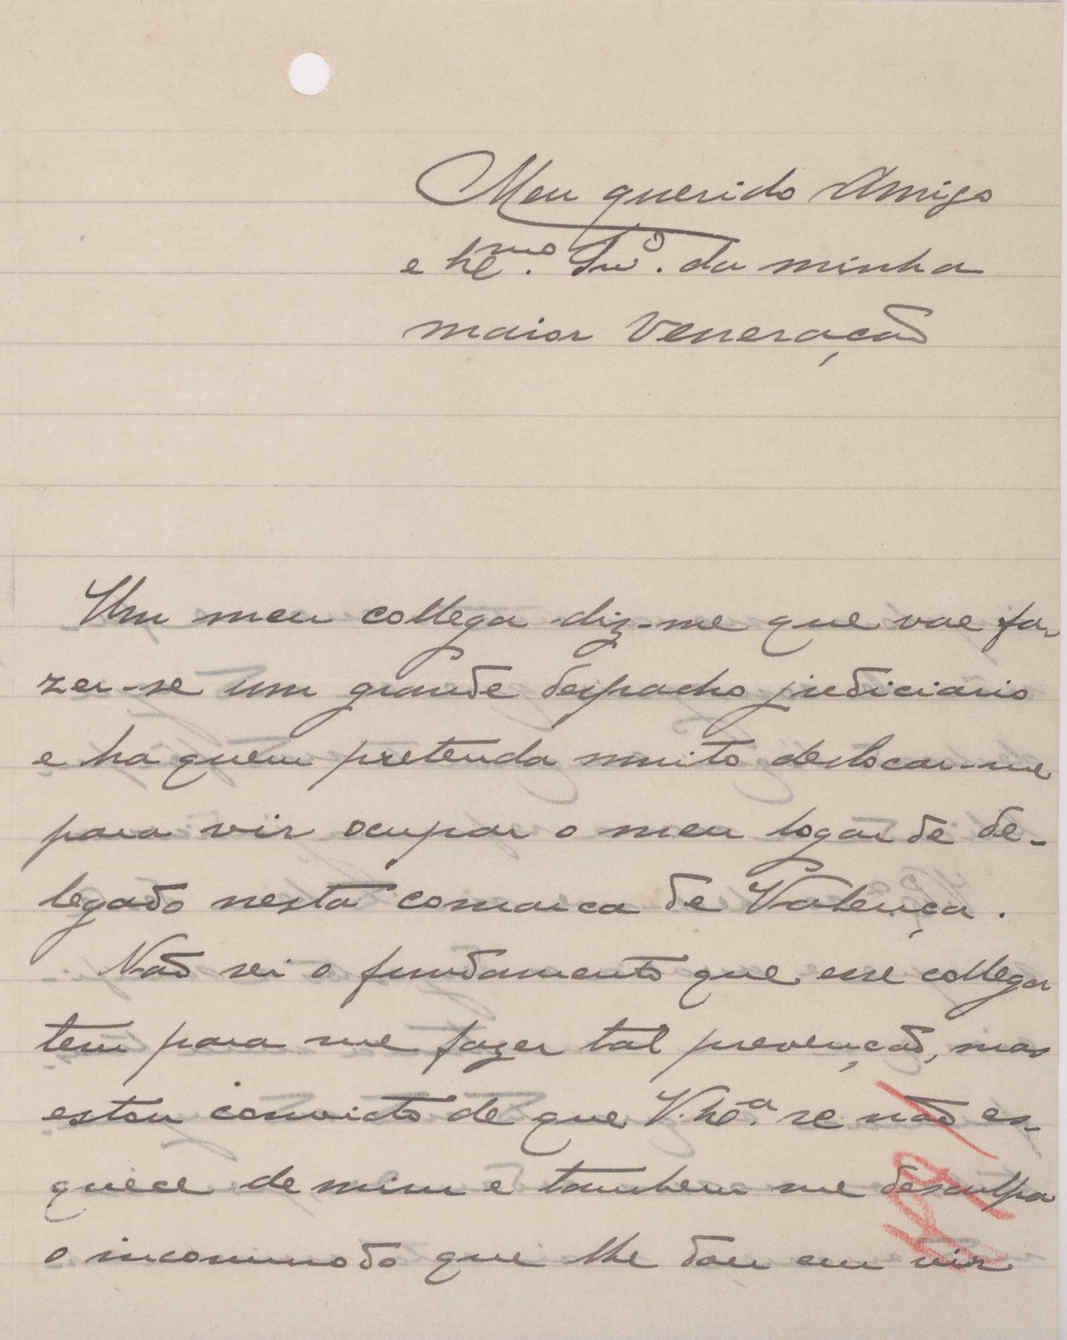 Meu querido Amigo
e Ex.mo Snr. da minha
maior veneração
Um meu collega diz-me que vae fa-
zer-se um grande despacho judiciario
e ha quem pretenda muito deslocar-me
para vir ocupar o meu logar de de-
legado nesta comarca de Valença.
Não sei o fundamento que esse collega
tem para me fazer tal prevenção, mas
estou convicto de que V. Ex.a se não es-
quece de mim e tambem me desculpa
o incommodo que lhe dou em vir